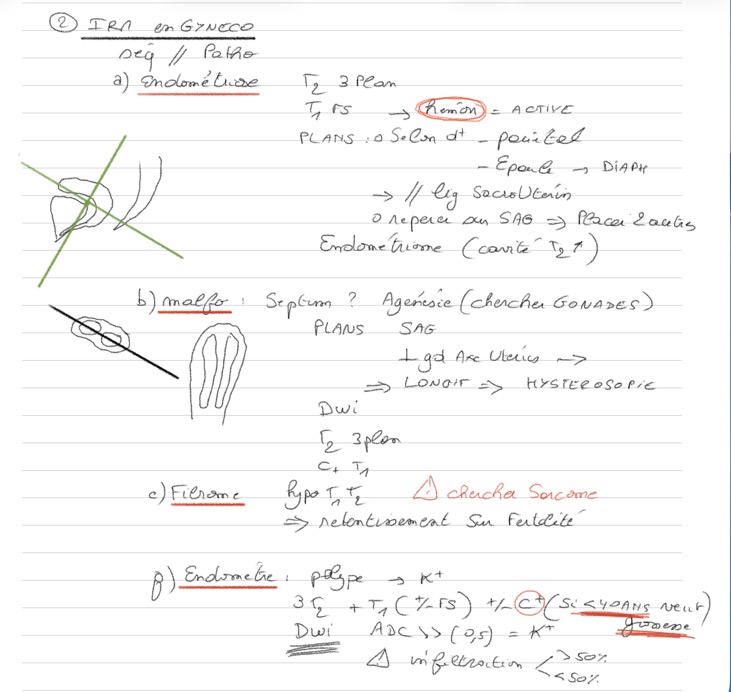 ② IRM en GYNECO
Séq // Patho
a) Endométriose T2 3 Plan
T1 FS → Hémorr = ACTIVE
PLANS : o Selon dt - pariétal
- Epaule → DIAPH
→ // lig SacroUtérin
o reperer sur SAG ⇒ Placer 2 autres
Endométriome (cavité T2 ↑)
b) malfo : Septum ? Agénésie (chercher GONADES)
PLANS SAG
⊥ gd Axe Utérus →
⇒ LONGIT ⇒ HYSTEROSOPIE
Dwi
T2 3 plan
C+ T1
c) Fibrome hypo T1 T2 ⚠ chercher Sarcome
⇒ retentissement sur Fertilité
β) Endomètre : polype → K+
3 T2 + T1 (+/- FS) +/- C+ (Si <40ANS veut grossesse)
Dwi ADC >> (0,5) = K+
⚠ infiltration >50%
<50%